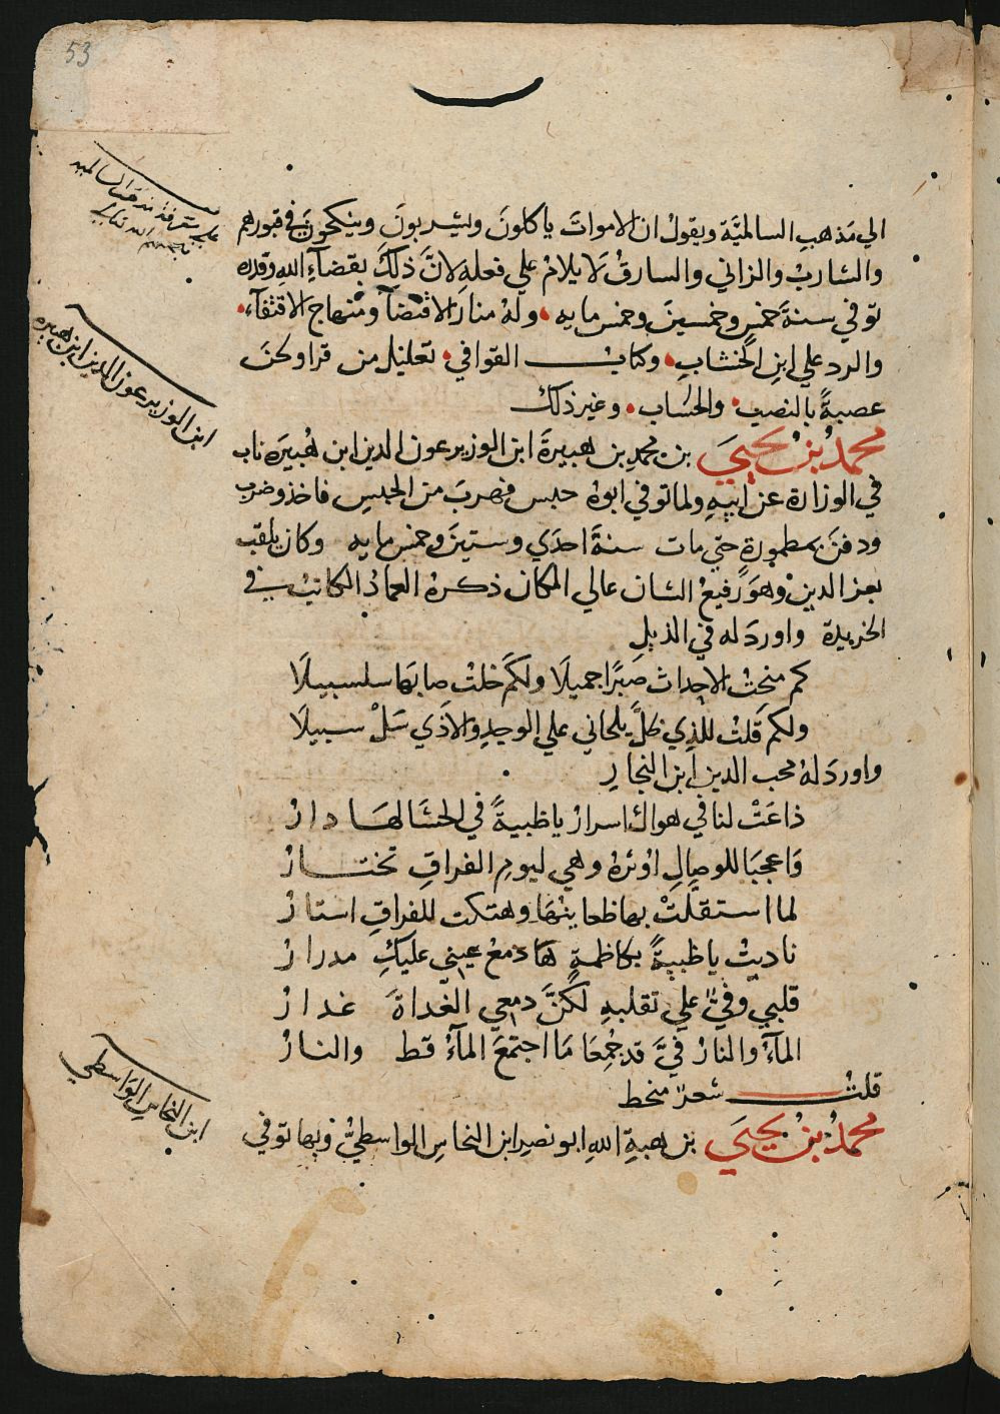 53
الي مَذهبِ السالميَّة ويقولُ ان الاموات ياكلونَ ويشربونَ وينكحونَ في قبورهم
والشاربُ والزاني والسارقُ لا يلامُ علي فعلهِ لانَّ ذلكَ بقضآءِ اللهِ وقدره
توفي سنةَ خمسٍ وخمسينَ وخمس مايه ولهُ منار الاقتضآ ومنهاج الاقتفآء
والرد علي ابنِ الخشابِ وكتابُ القوافي تعليل من قرا وكنَ
عصبةً بالنصبِ والحسَاب وغير ذلك
محمدُ بنُ يحيَي بن محمدِ بن هبيرةَ ابن الوزير عون الدين ابن هُبيرَه ناب
في الوزارة عن ابيهِ ولما توفي ابوهُ حبس فهربَ من الحبس فاخذ وضرب
ودفنَ بمطمورةٍ حتي مات سنةَ احدَي وستينَ وخمس مايه وكان يلقب
بعز الدينْ وهوَ رفيعُ الشان عالي المكان ذكرهُ العمادُ الكاتبُ في
الخريدة واوردَ له في الذيلِ
كم منحتُ الاحداث صَبرًا جميلَا ولكَم خلتُ صابَهَا سلسبيلَا
ولكم قَلتُ للذي ظلَّ يلحاني علي الوجدِ والاذَي سَلْ سبيلَا
واوردَ لهُ محب الدين ابن النجارِ
ذاعَتْ لنا في هواك اسرارُ ياظبيةً في الحشَا لهَا دارُ
وَاعجبَا للوصالِ اوثرهُ وهي ليومِ الفراقِ تختارُ
لما استقلَّتْ بها ظعاينهَا وهتكت للفراقِ استارُ
ناديتُ ياظبيةً بكاظمةٍ هَا دمعُ عيني عليكِ مدرارُ
قلبي وفيٌّ علي تقلبهِ لكنَّ دمعي الغَداةَ غدارُ
المآءُ والنارُ فيَّ قد جُمِعَا مَا اجتمعَ المآءُ قط والنارُ
قلتُ شعرٌ منحط
محمدُ بنُ يحيَي بن هبةِ اللهِ ابو نصر ابن النحاسِ الواسطيُّ وبها توفي
ابن الوزير عون الدين ابن هبيره
ابن النحاسِ الواسطي